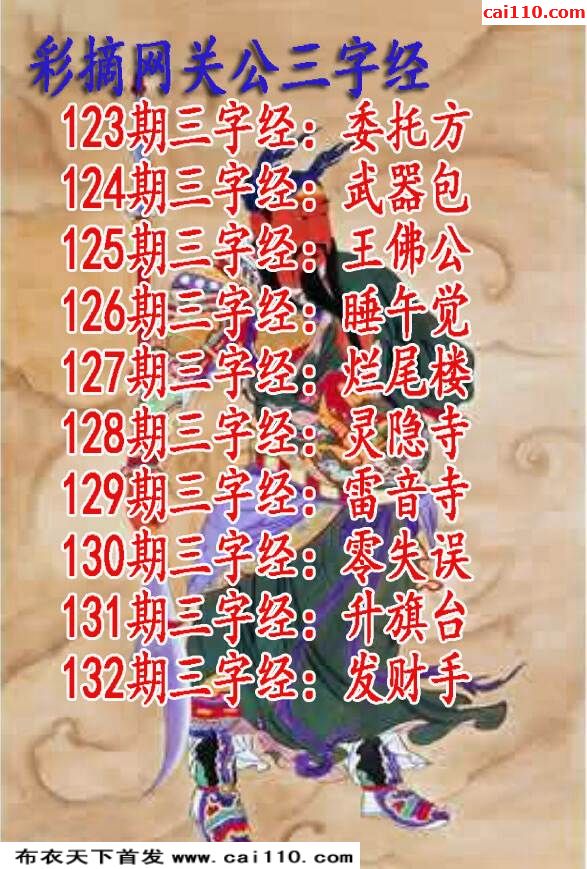 cai110.com
彩摘网关公三字经
123期三字经：委托方
124期三字经：武器包
125期三字经：王佛公
126期三字经：睡午觉
127期三字经：烂尾楼
128期三字经：灵隐寺
129期三字经：雷音寺
130期三字经：零失误
131期三字经：升旗台
132期三字经：发财手
布衣天下首发 www.cai110.com